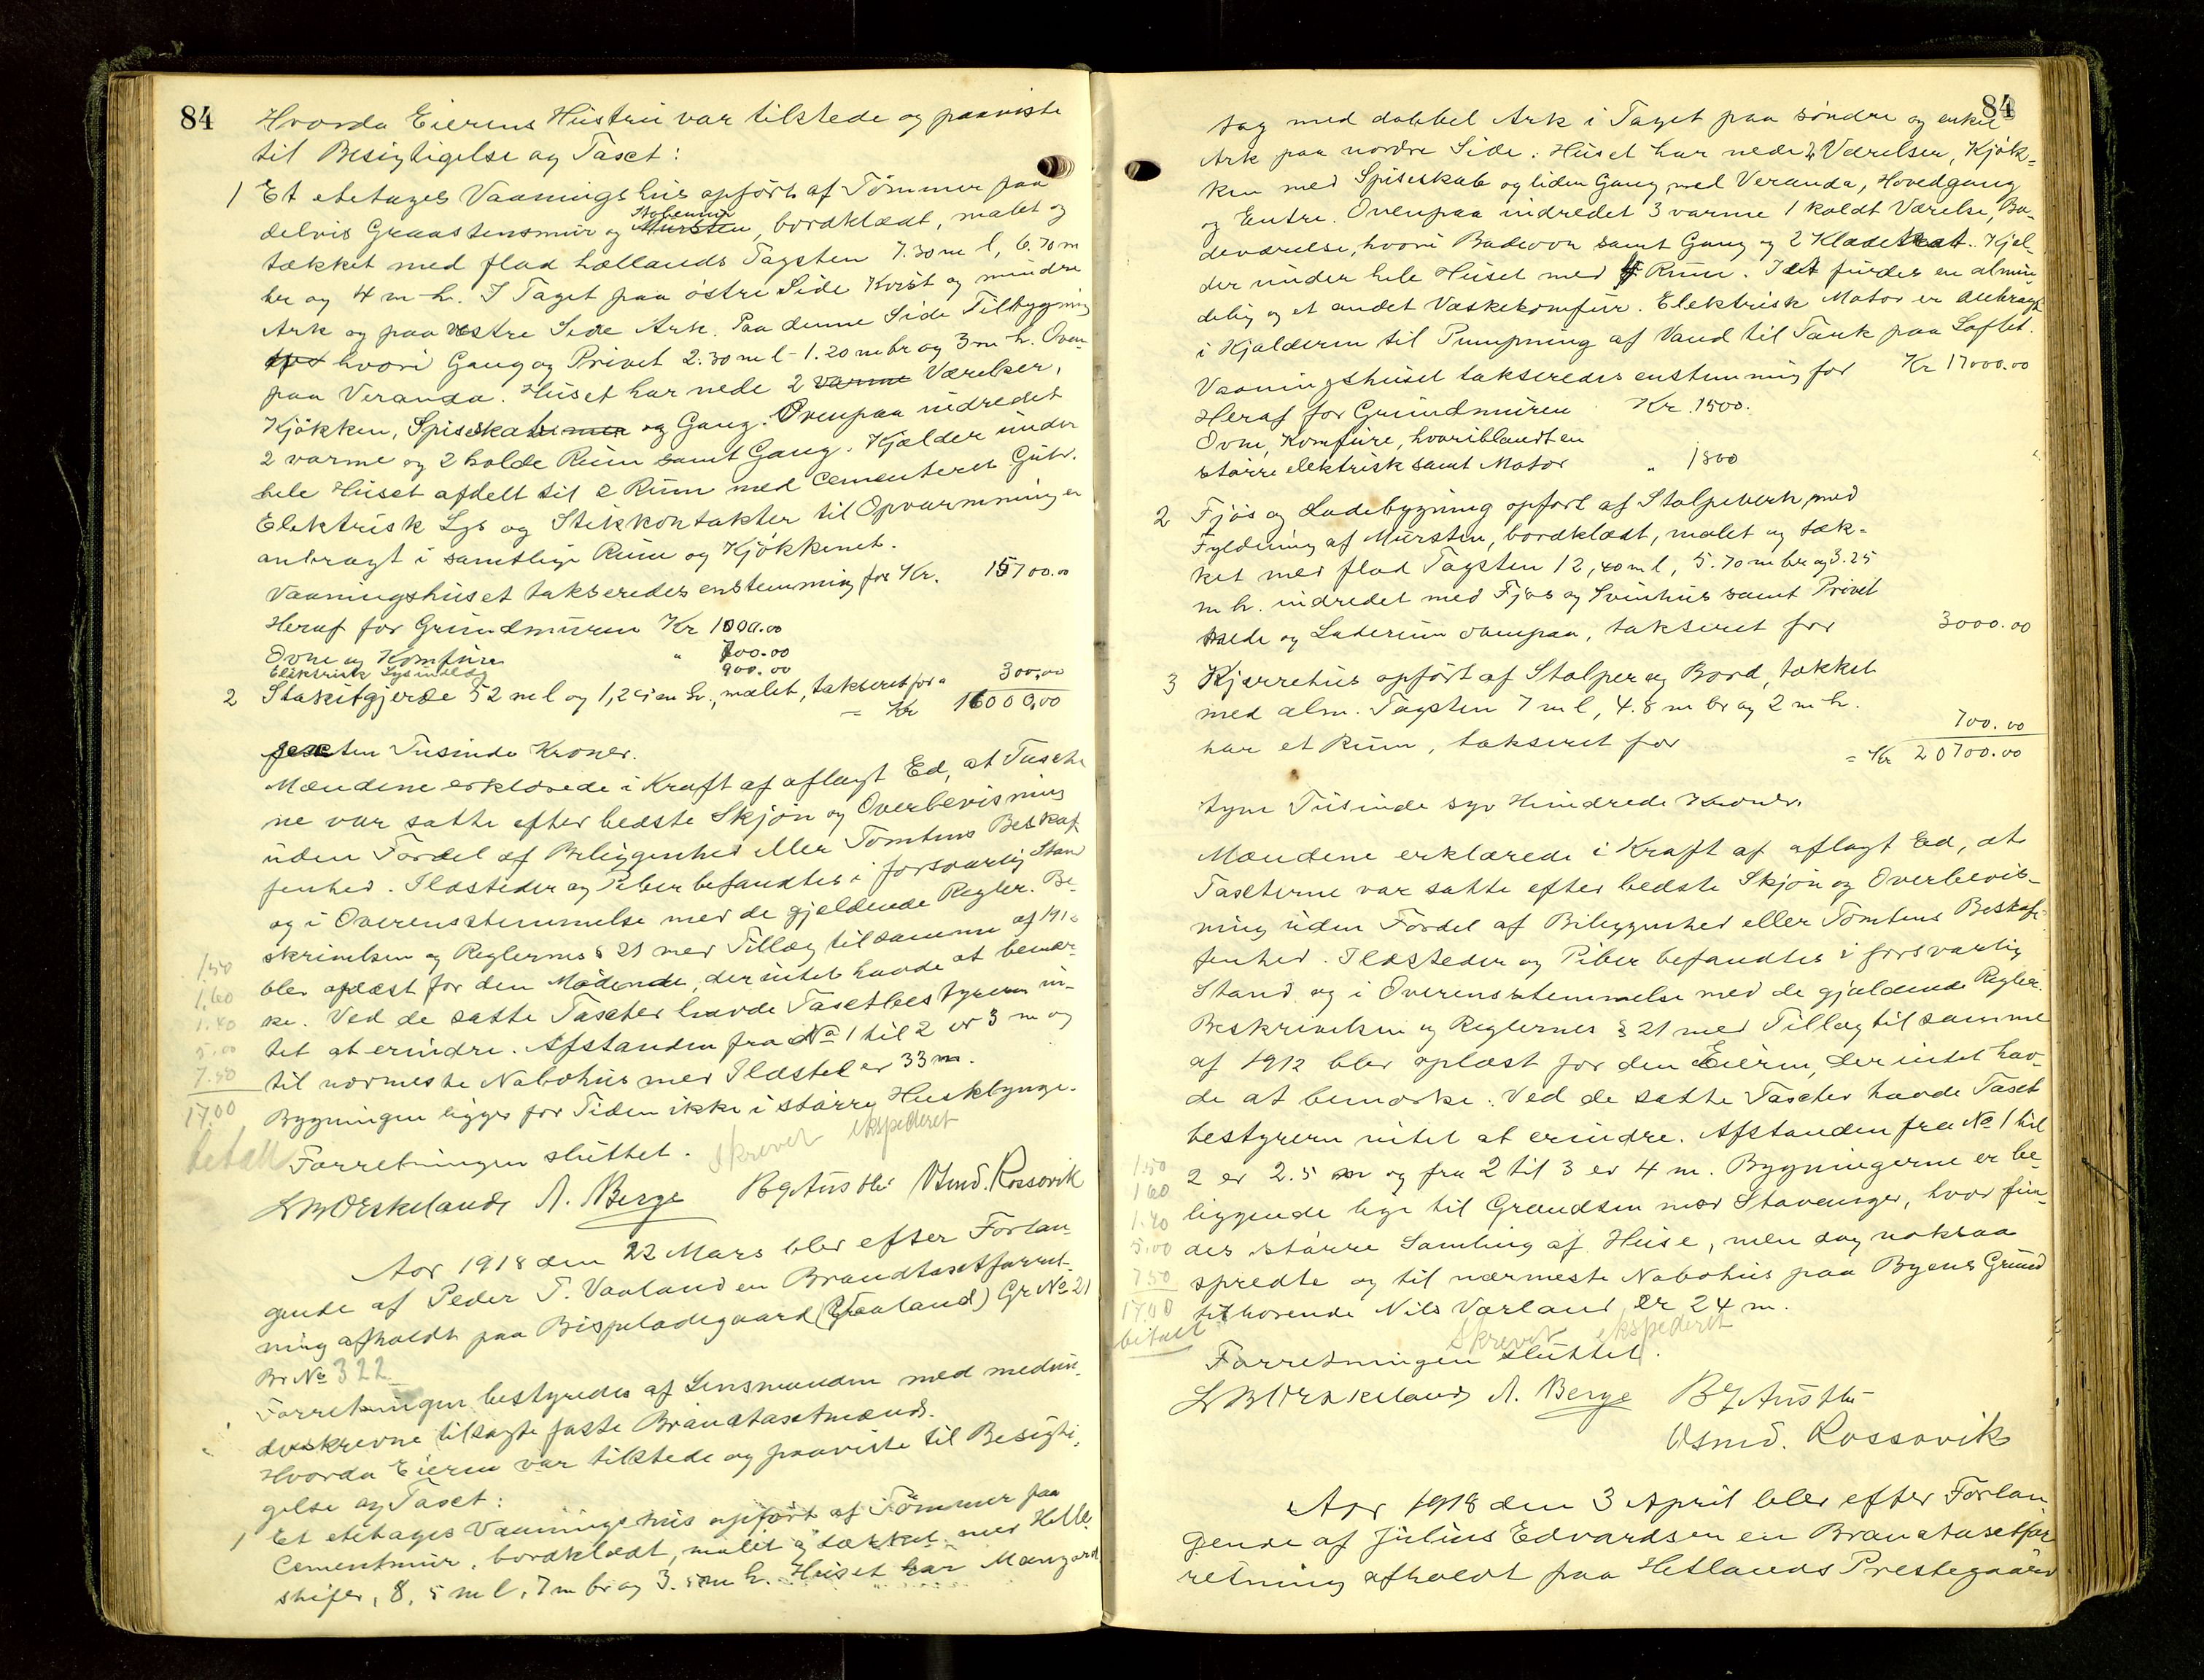 84
Hvorda Eierens Hustru var tilstede og paaviste
til Besigtigelse og Taxt:
1 Et etetages Vaaningshus opført af Tømmer paa
delvis Graastensmur og Mursten, bordklædt, malet og
tækket med flad hollands Tagsten 7.30 m l, 6.70 m
br og 4 m h. I Taget paa østre Side Kvist og mindre
Ark og paa vestre Side Ark. Paa denne Side Tilbygning
hvori Gang og Privet 2.30 m l - 1.20 m br og 3 m h. Oven-
paa Veranda. Huset har nede 2 varme Værelser,
Kjøkken, Spiseskab og Gang. Ovenpaa indredet
2 varme og 2 kolde Rum samt Gang. Kjælder under
hele Huset afdelt til 2 Rum med Cementeret Gulv.
Elektrisk Lys og Stikkontakter til Opvarmning er
anbragt i samtlige Rum og Kjøkkenet.
Vaaningshuset takseredes enstemmig for Kr. 15700.00
Heraf for Grundmuren Kr 1000.00
Ovne og Komfurer " 700.00
Elektrisk Lysindlæg 900.00
2 Stakitgjerde 52 m l og 1,25 m h., malet, takseret for " 300.00
= Kr 16000,00
sexten Tusinde Kroner.
Mændene erklærede i Kraft af aflagt Ed, at Taxter
ne var satte efter bedste Skjøn og Overbevisning
uden Fordel af Beliggenhed eller Tomtens Beskaf
fenhed. Ildsteder og Piber befandtes i forsvarlig Stand
og i Overensstemmelse med de gjældende Regler. Be-
skrivelsen og Reglernes § 21 med Tillæg til samme af 1912
blev oplæst for den Mødende, der intet havde at bemær-
ke. Ved de satte Taxter havde Taxtbestyreren in-
tet at erindre. Afstanden fra No 1 til 2 er 3 m og
til nærmeste Nabohus med Ildsted er 33 m.
Bygningen ligger for Tiden ikke i større Husklynge.
1.50
1.60
1.40
5.00
7.50
17.00
betalt
Forretningen sluttet. skrevet ekspederet
L M Erskeland A. Berge B G Austbø Osmd. Rossavik
Aar 1918 den 22 Mars blev efter Forlan-
gende af Peder T. Vaaland en Brandtaxtforret-
ning afholdt paa Bispeladegaard (Vaaland) Gr No 21
Br No 322
Forretningen bestyredes af Lensmanden med medun-
derskrevne tilsagte faste Brandtaxtmænd.
Hvorda Eieren var tilstede og paaviste til Besigti-
gelse og Taxt:
1 Et etetages Vaaningshus opført af Tømmer paa
Cementmur, bordklædt, malet og tækket med Helle
skifer, 8,5 m l, 7 m br og 3.5 m h. Huset har Mansard
84
tag med dobbel Ark i Taget paa søndre og enkel
Ark paa nordre Side. Huset har nede 4 Værelser, Kjøk-
ken med Spiseskab og liden Gang med Veranda, Hovedgang
og Entre. Ovenpaa indredet 3 varme 1 koldt Værelse, Ba-
deværelse, hvori Badeovn samt Gang og 2 Klædeskab. Kjæl-
der under hele Huset med 4 Rum. I et findes en almin-
delig og et andet Vaskekomfur. Elektrisk Motor er anbragt
i Kjælderen til Pumpning af Vand til Tank paa Loftet.
Vaaningshuset takseredes enstemmig for Kr 17000.00
Heraf for Grundmuren Kr. 1500.
Ovne, Komfure, hvoriblandt en
større elektrisk samt Motor " 1800
2 Fjøs og Ladebygning opført af Stolpeverk med
Fyldning af Mursten, bordklædt, malet og tæk-
ket med flad Tagsten 12,40 m l, 5.70 m br og 3.25
m h. indredet med Fjøs og Svinhus samt Privet
nede og Laderum ovenpaa, takseret for 3000.00
3 Kjærrehus opført af Stolper og Bord, tækket
med alm. Tagsten 7 m l, 4.8 m br og 2 m h.
har et Rum, takseret for 700.00
= Kr 20700.00
tyve Tusinde syv Hundrede Kroner.
Mændene erklærede i Kraft af aflagt Ed, at
Taxterne var satte efter bedste Skjøn og Overbevis-
ning uden Fordel af Beliggenhed eller Tomtens Beskaf-
fenhed. Ildsteder og Piber befandtes i forsvarlig
Stand og i Overensstemmelse med de gjældende Regler.
Beskrivelsen og Reglernes § 21 med Tillæg til samme
af 1912 blev oplæst for den Eieren, der intet hav-
de at bemærke. Ved de satte Taxter havde Taxt
bestyreren intet at erindre. Afstanden fra No 1 til
2 er 2.5 m og fra 2 til 3 er 4 m. Bygningerne er be-
liggende lige til Grændsen mod Stavanger, hvor fin-
des større Samling af Huse, men dog noksaa
spredte og til nærmeste Nabohus paa Byens Grund
tilhørende Nils Varland er 24 m.
1.50
1.60
1.40
5.00
7.50
17.00
betalt
skrevet ekspederet
Forretningen sluttet.
L M Erskeland A. Berge B G Austbø
Osmd. Rossavik
Aar 1918 den 3 April blev efter Forlan
gende af Julius Edvardsen en Brandtaxtfor
retning afholdt paa Hetlands Prestegaard